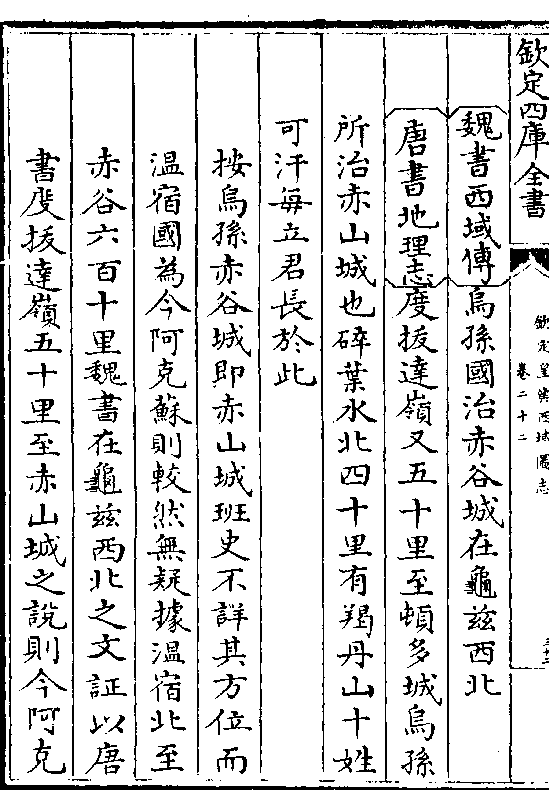 欽定四庫全書
欽定皇輿西域圖志
卷二十二
魏書西域傳烏孫國治赤谷城在龜兹西北
唐書地理志度拔達嶺又五十里至頓多城烏孫
所治赤山城也碎葉水北四十里有羯丹山十姓
可汗每立君長於此
按烏孫赤谷城即赤山城班史不詳其方位而
温宿國為今阿克蘇則較然無疑據温宿北至
赤谷六百十里魏書在龜兹西北之文証以唐
書度拔達嶺五十里至赤山城之說則今阿克